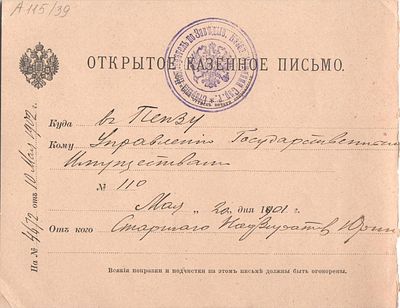 А 115/39
ОТКРЫТОЕ КАЗЕННОЕ ПИСЬМО.
Куда въ Пензу
Кому Управленію Государственными
Имуществами
№ 110
Мая „ 20 „ дня 1901 г.
Отъ кого Старшаго
Всякія поправки и подчистки на этомъ письмѣ должны быть оговорены.
На № отъ 10 Мая 1902 г.